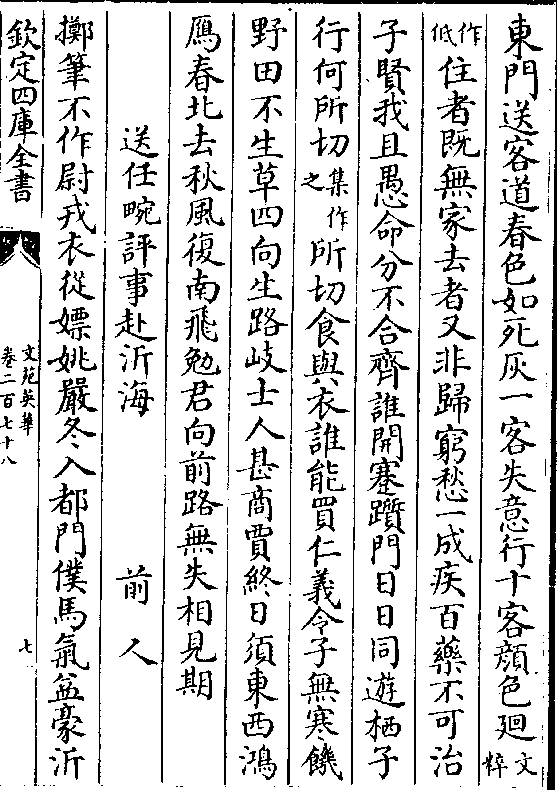 東門送客道春色如死灰一客失意行十客顔色廻文粹
作低住者既無家去者又非歸窮愁一成疾百藥不可治
子賢我且愚命分不合齊誰開蹇躓門日日同遊栖子
行何所切集作之所切食與衣誰能買仁義令子無寒饑
野田不生草四向生路歧士人甚商賈終日須東西鴻
鴈春北去秋風復南飛勉君向前路無失相見期
送任畹評事赴沂海　前人
擲筆不作尉戎衣從嫖姚嚴冬入都門僕馬氣益豪沂
欽定四庫全書
文苑英華
卷二百七十八
七